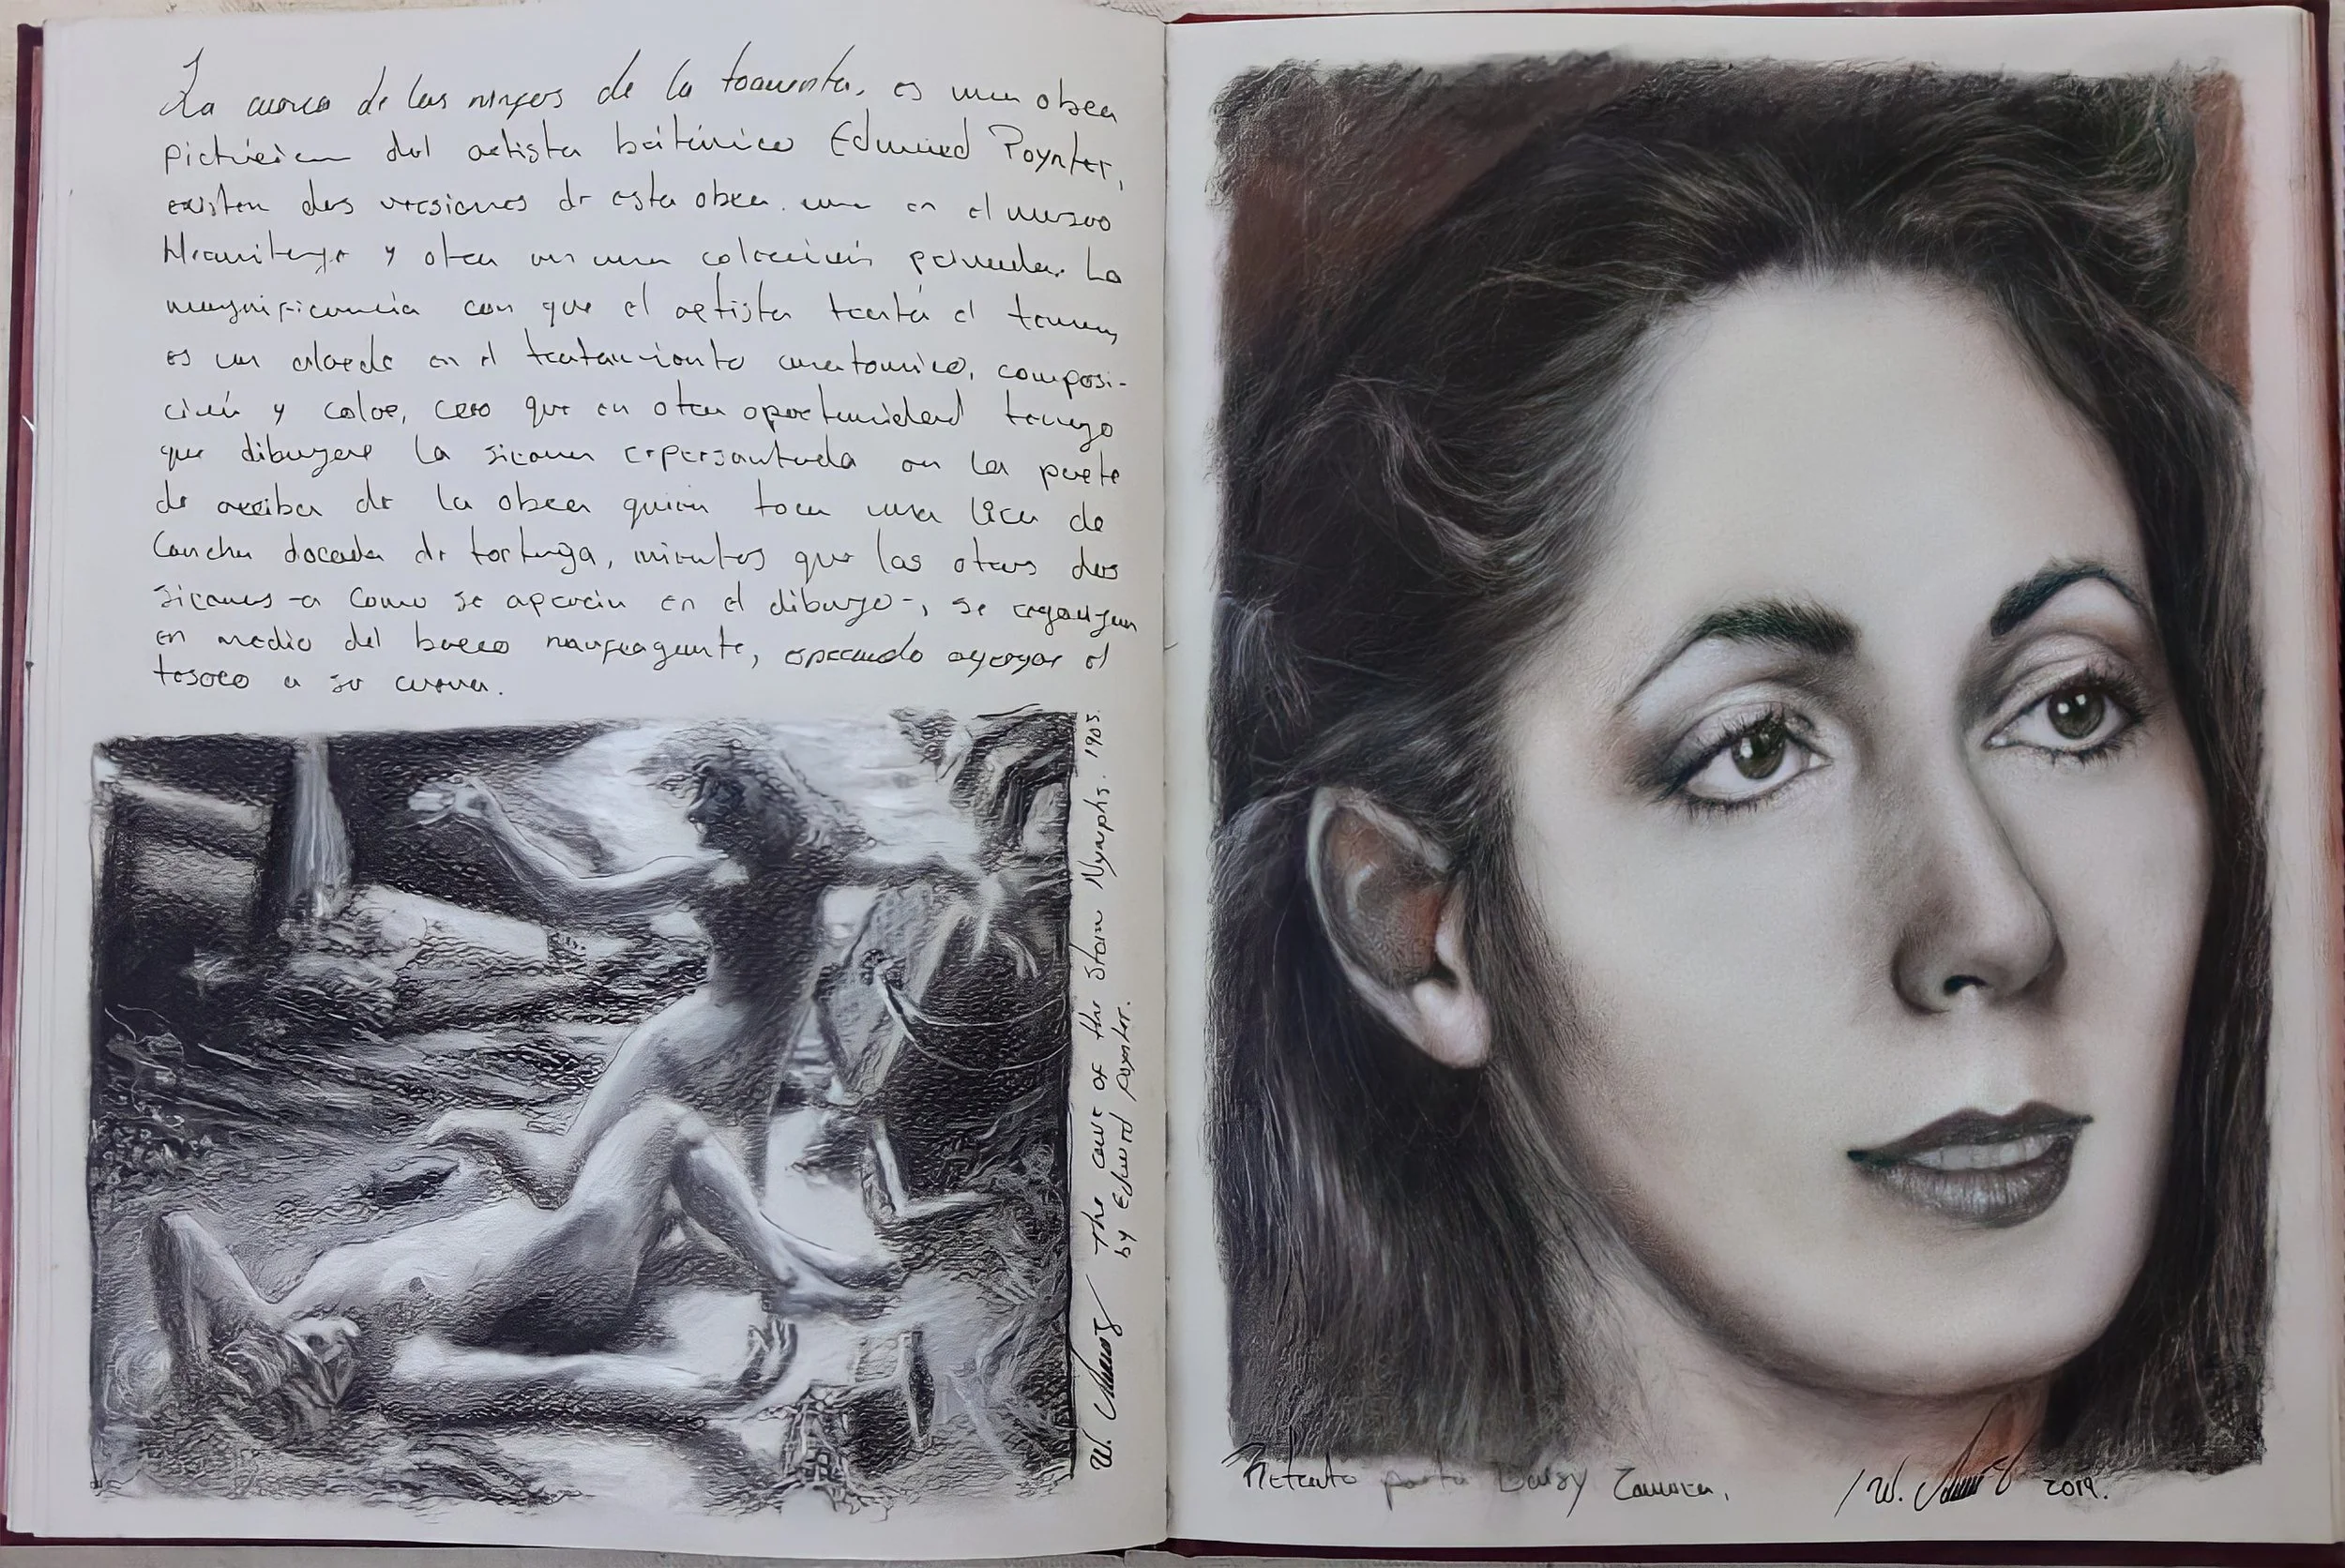 La cueva de las ninfas de la tormenta, es una obra
pictórica del artista británico Edward Poynter,
existen dos versiones de esta obra. una en el museo
Hermitage y otra en una colección privada. La
magnificencia con que el artista trató el tema,
es un alarde en el tratamiento anatomico, composi-
ción y color, creo que en otra oportunidad tengo
que dibujar la sirena representada en la parte
de arriba de la obra quien toca una lira de
Concha dorada de tortuga, mientras que las otras dos
sirenas -a como se aprecia en el dibujo-, se regocijan
en medio del barco naufragante, esperando agregar el
tesoro a su cueva.
The cave of the Storm Nymphs. 1903.
by Edward Poynter.
W.
Retrato poeta Daisy Zamora.
W. 2019.